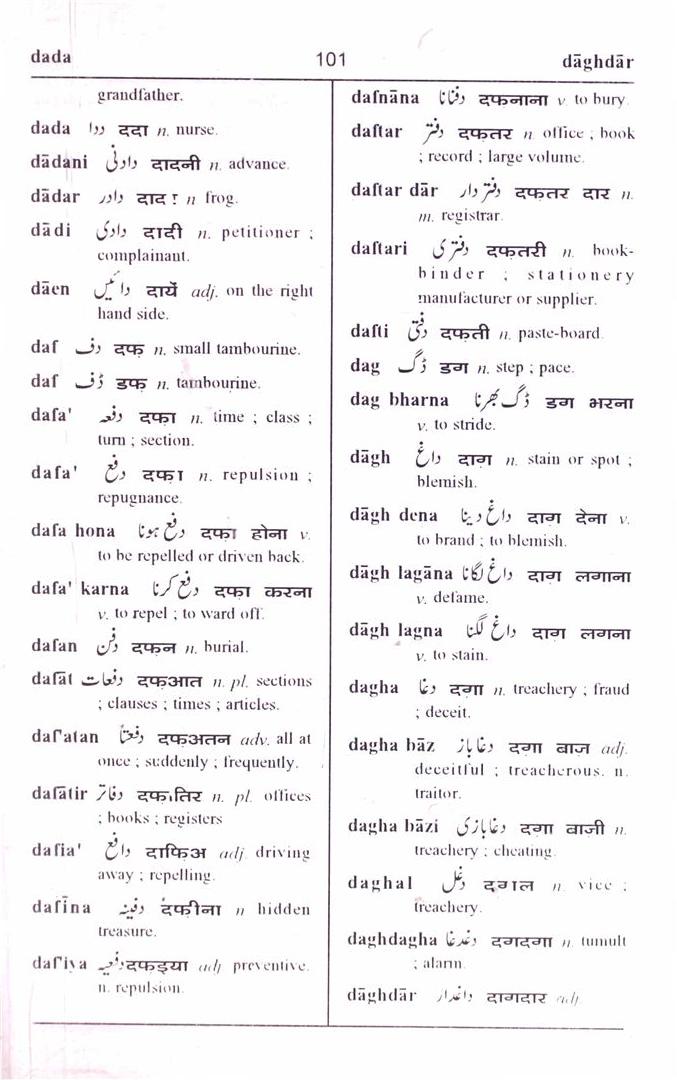 dada 101 dāghdār
grandfather.
dada ددا ददा n. nurse.
dādani دادنی दादनी n. advance.
dādar دادر दादर n frog.
dādi دادی दादी n. petitioner ;
complainant.
dāen دائیں दायें adj. on the right
hand side.
daf دف दफ़ n. small tambourine.
daf ڈف डफ़ n. tambourine.
dafa' دفعہ दफ़ा n. time ; class ;
turn ; section.
dafa' دفع दफ़ा n. repulsion ;
repugnance.
dafa hona دفع ہونا दफ़ा होना v.
to be repelled or driven back.
dafa' karna دفع کرنا दफ़ा करना
v. to repel ; to ward off.
dafan دفن दफ़न n. burial.
dafāt دفعات दफ़आत n. pl. sections
; clauses ; times ; articles.
daf'atan دفعتاً दफ़अतन adv. all at
once ; suddenly ; frequently.
dafātir دفاتر दफ़ातिर n. pl. offices
; books ; registers
dafia' دافع दाफ़िअ adj. driving
away ; repelling.
dafīna دفینہ दफ़ीना n hidden
treasure.
daf'iya دفعیہ दफ़इया adj preventive.
n. repulsion.
dafnāna دفنانا दफ़नाना v. to bury.
daftar دفتر दफ़तर n office ; book
; record ; large volume.
daftar dār دفتر دار दफ़तर दार n.
m. registrar.
daftari دفتری दफ़तरी n. book-
binder ; stationery
manufacturer or supplier.
dafti دفتی दफ़ती n. paste-board.
dag ڈگ डग n. step ; pace.
dag bharna ڈگ بھرنا डग भरना
v. to stride.
dāgh داغ दाग़ n. stain or spot ;
blemish.
dāgh dena داغ دینا दाग़ देना v.
to brand ; to blemish.
dāgh lagāna داغ لگانا दाग़ लगाना
v. defame.
dāgh lagna داغ لگنا दाग़ लगना
v. to stain.
dagha دغا दग़ा n. treachery ; fraud
; deceit.
dagha bāz دغا باز दग़ा बाज़ adj.
deceitful ; treacherous. n.
traitor.
dagha bāzi دغا بازی दग़ा बाज़ी n.
treachery ; cheating.
daghal دغل दग़ल n. vice ;
treachery.
daghdagha دغدغا दग़दग़ा n. tumult
; alarm.
dāghdār داغدار दाग़दार adj.